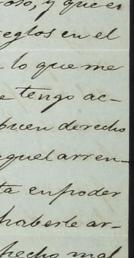 oso, y que es
reglos en el
lo que me
e tengo ac-
buen derecho
aquel arren-
ta en poder
haberle ar-
hecho mal